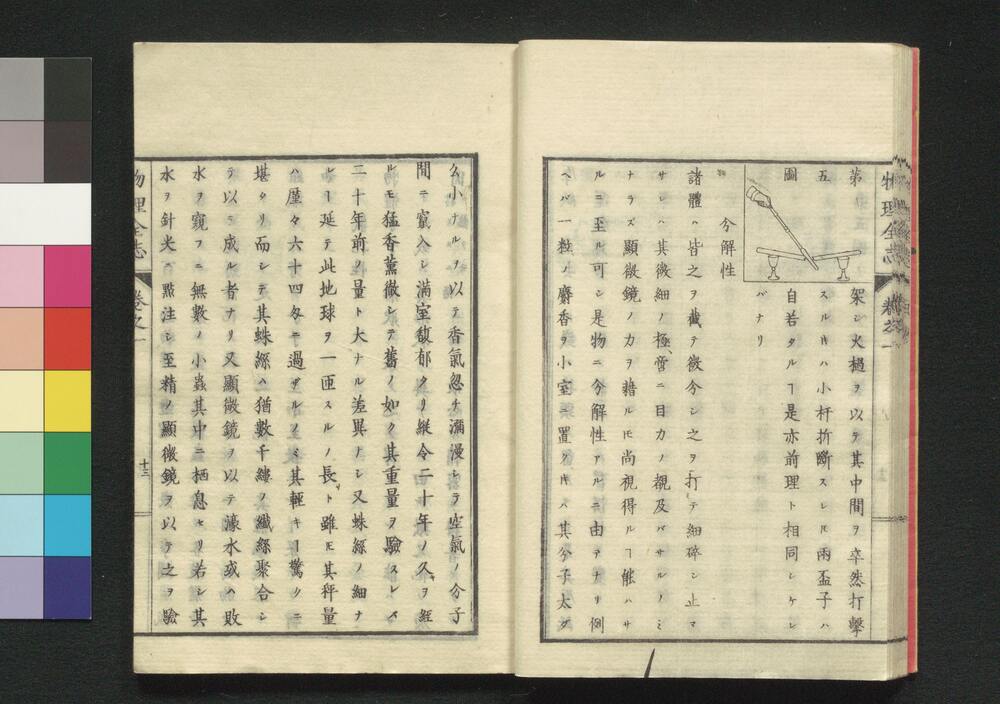 物理全志 卷之一
第五圖
架シ火撾ヲ以テ其中間ヲ卒然打擊
スルキハ小杆折斷スレ𪜈兩盃子ハ
自若タルヿ是亦前理ト相同シケレ
バナリ
分解性
諸體ハ皆之ヲ截テ微分シ之ヲ打テ細碎シ止マ
サレハ其微細ノ極啻ニ目力ノ覩及バサルノミ
ナラズ顯微鏡ノ力ヲ藉ルモ尚視得ルヿ能ハサ
ルニ至ル可シ是物ニ分解性アルニ由テナリ例
ヘバ一粒ノ麝香ヲ小室ニ置クキハ其分子太ダ
久小ナルヲ以テ香氣忽チ瀰漫シテ空氣ノ分子
間ニ竄入シ滿室馥郁タリ縱令二十年ノ久ヲ經
ルモ猛香薰徹シテ舊ノ如ク其重量ヲ驗スレバ
二十年前ノ量ト大ナル差異ナシ又蛛絲ノ細ナ
レヿ延テ此地球ヲ一匝スルノ長ト雖モ其秤量
ハ厪々六十四匁ニ過ザルノミ其輕キヿ驚クニ
堪タリ而シテ其蛛絲ハ猶數千縷ノ纖絲聚合シ
テ以テ成ル者ナリ又顯微鏡ヲ以テ濠水或ハ敗
水ヲ窺フニ無數ノ小蟲其中ニ栖息セリ若シ其
水ヲ針尖ニ點注シ至精ノ顯微鏡ヲ以テ之ヲ驗
物理全志 卷之一 十三